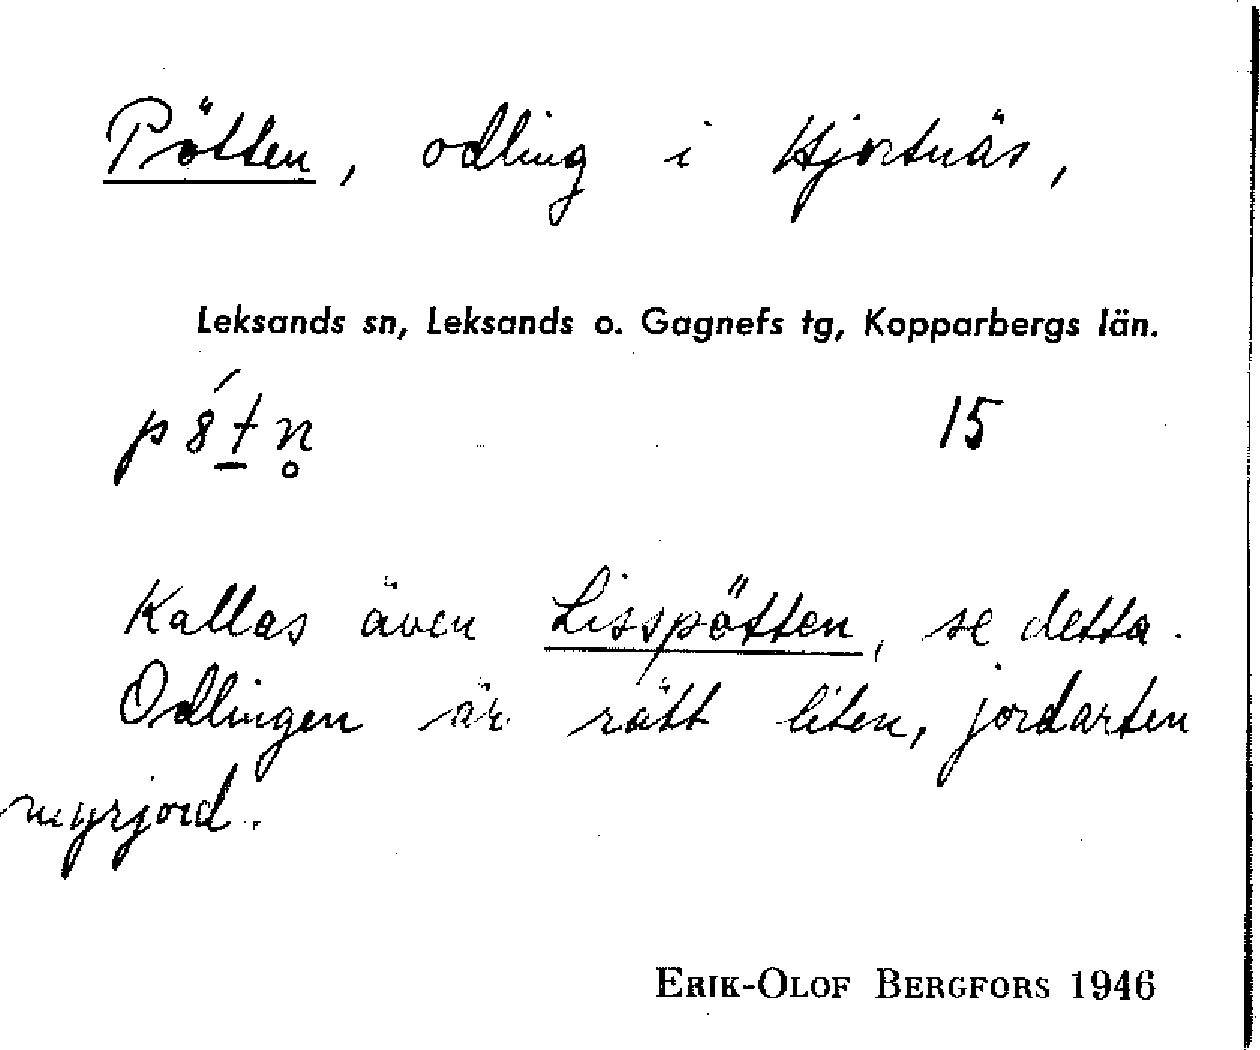 Pötten, odling i Hjortnäs,
Leksands sn, Leksands o. Gagnefs tg, Kopparbergs län.
p8́t̠n̥ 15
Kallas även Lisspötten, se detta.
Odlingen är rätt liten, jordarten
myrjord.
ERIK-OLOF BERGFORS 1946